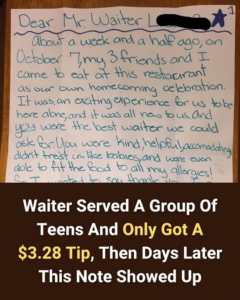 Dear Mr Waiter L
1
About a week and a half ago, on
October 7, my 3 friends and I
came to eat at this restaurant
as our own homecoming celebration.
It was an exciting experience for us to be
here alone, and it was all new to us. And
you were the best waiter we could
ask for. You were kind, helpful, accomadating
didn't treat us like babies, and were even
able to fit the food to all my allergies!
Waiter Served A Group Of
Teens And Only Got A
$3.28 Tip, Then Days Later
This Note Showed Up